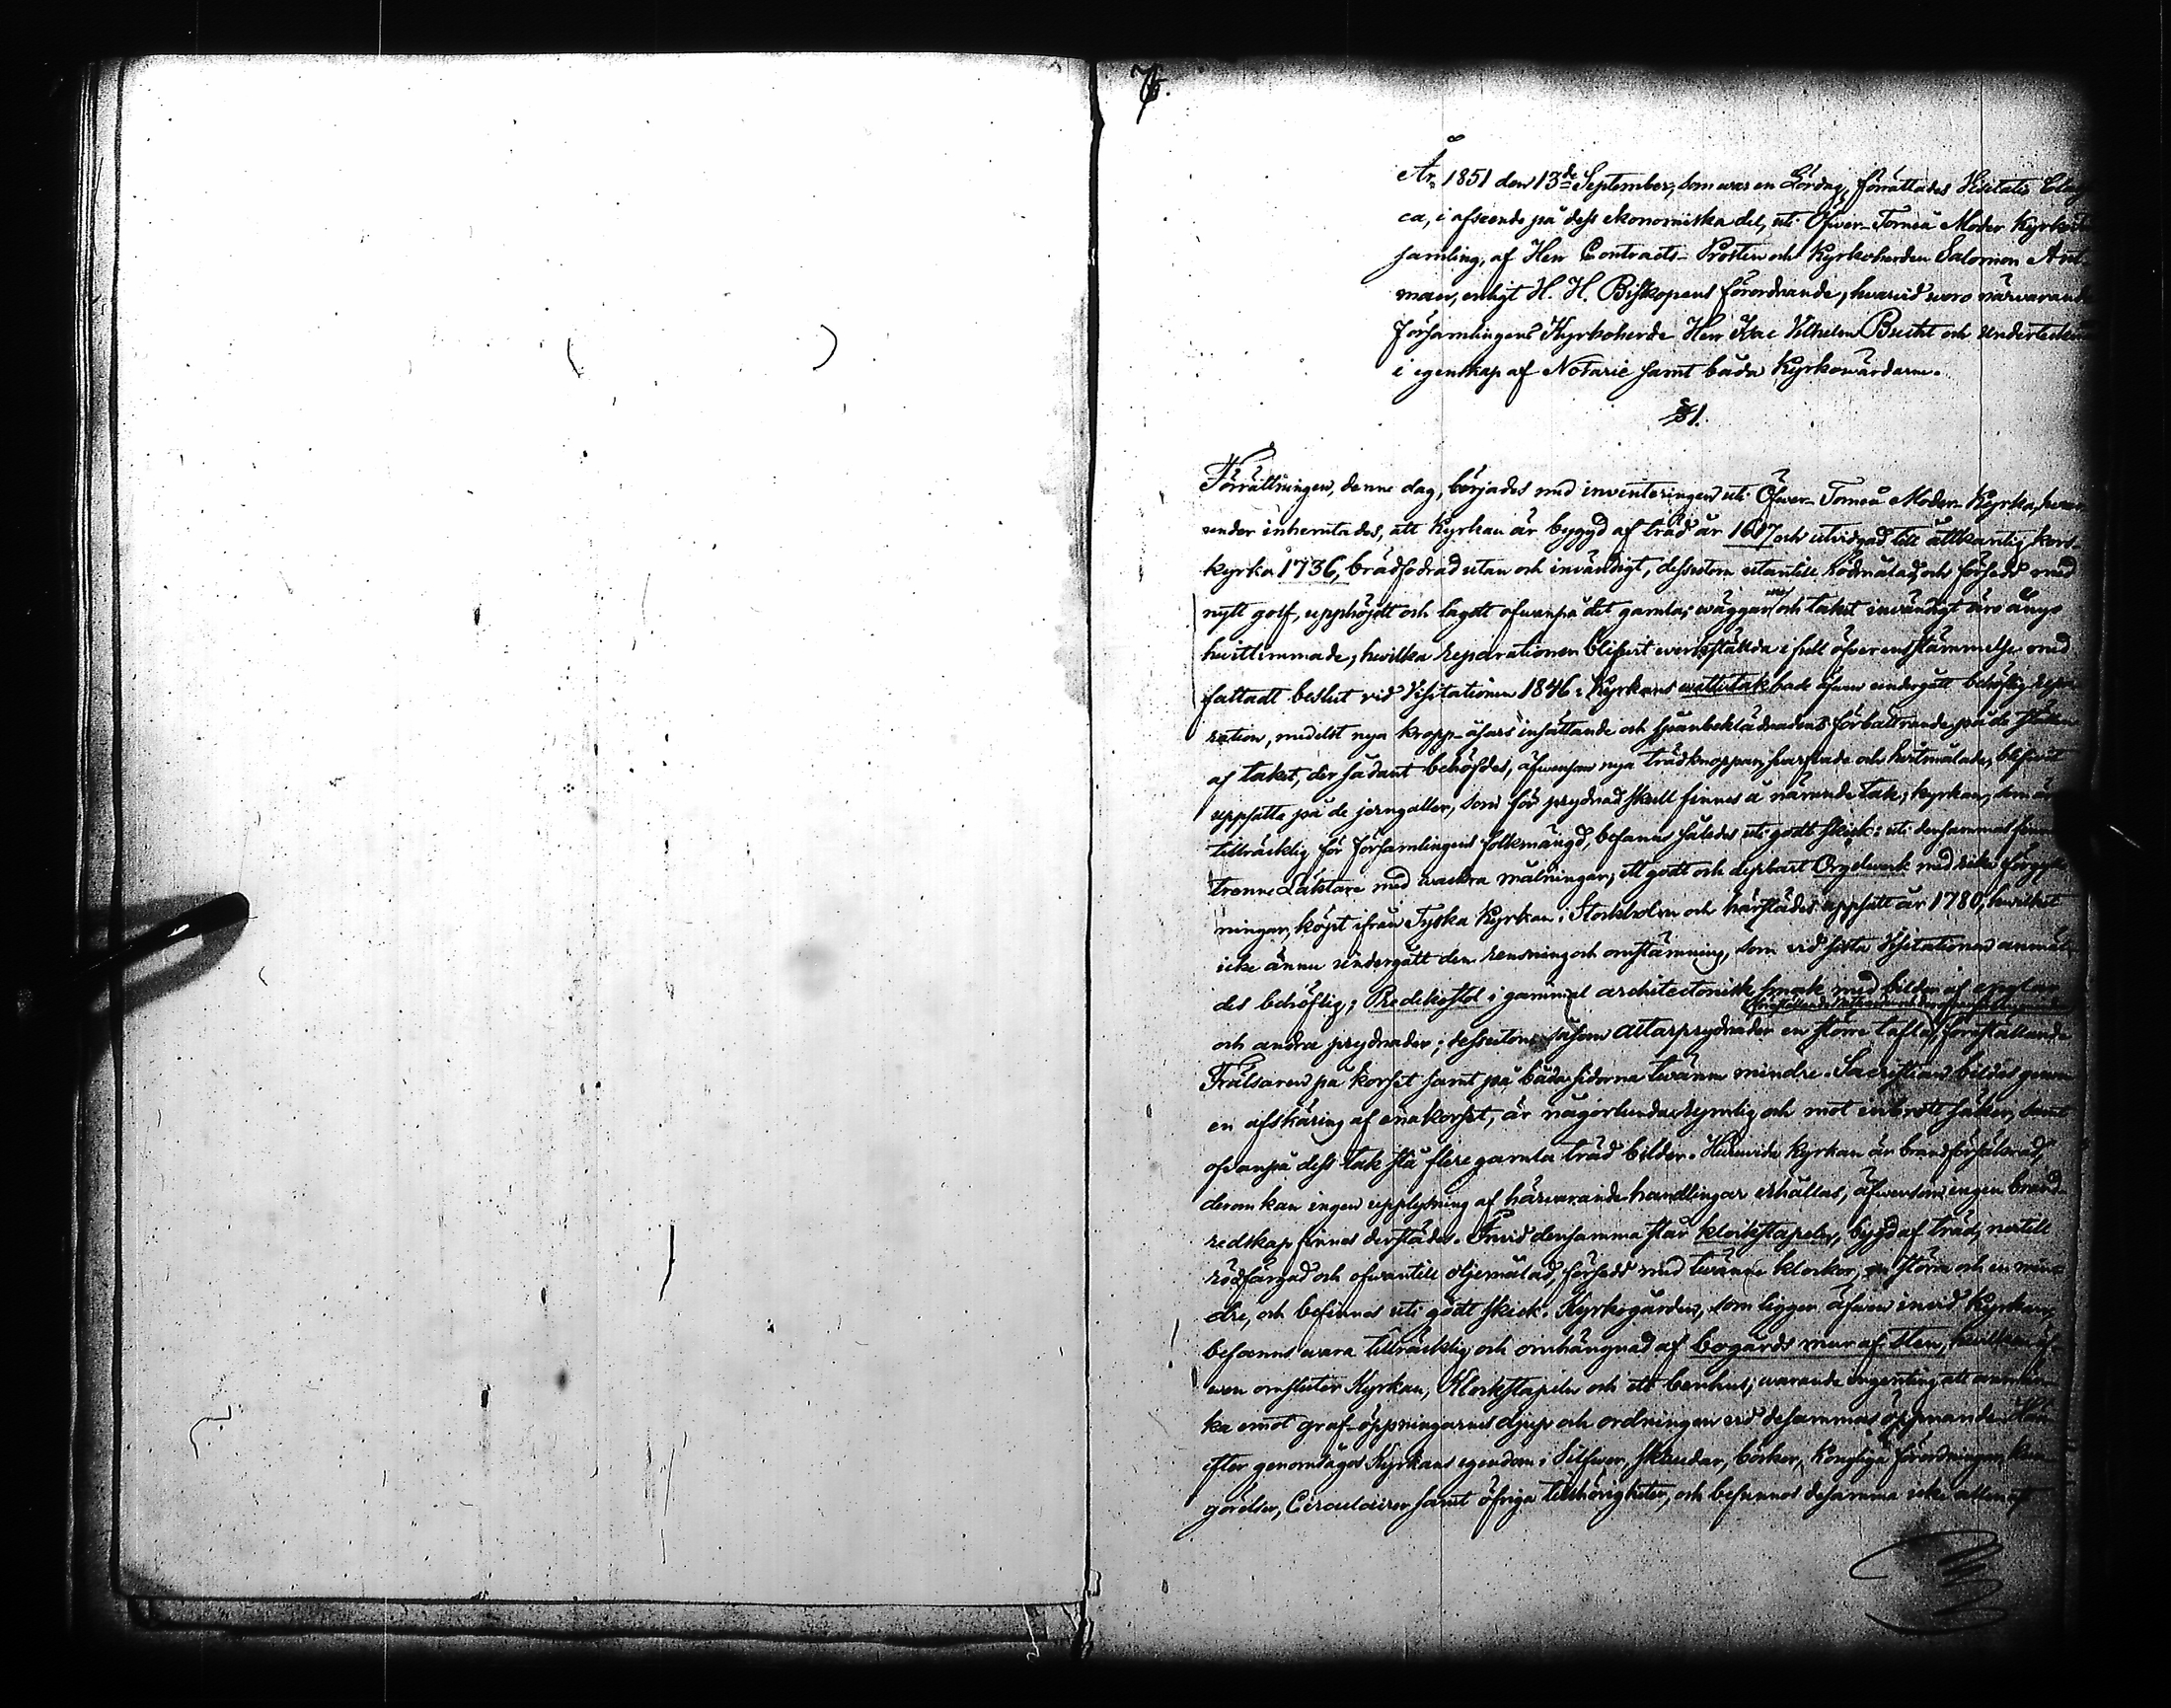 År 1851 den 13de September, som war en Lördag, förrättades Visitatio
ca, i afseende på dess ekonomiska del, uti Öfwer-Torneå Moder Kyrko
samling, af Herr Contracts-Prosten och Kyrkoherden Salomon
man, enligt H. H. Biskopens förordnande, hwarwid woro närwarande
församlingens Kyrkoherde Herr Vilhelm och Underteckn
i egenskap af Notarie samt båda Kyrkowärdarne.
§1.
Förrättningen, denne dag, börjades med inventeringen uti Öfwer-Torneå Moder-Kyrka, hwar
under inhemtades, att Kyrkan är byggd af träd år 1617 och utvidgad till åttkantig kors-
kyrka 1736, brädfodrad utan och invändigt, dessutom utantill rödmålad, och försedd med
nytt golf, upphöjdt och lagdt ofwanpå det gamla; wäggar och taket invändigt äro ånyo
hwitlimmade, hwilka reparationer blifwit werkställda i full öfwerensstämmelse med
fattadt beslut vid Visitationen 1846: Kyrkans wattutak hade äfwen undergått behöflig repa-
ration, medelst nya kropp-åsars insättande och spånbeklädnadens förbättrande på de ställen
af taket, der sådant behöfdes, äfwensom nya trädknoppar, swarfwade och hwitmålade, blifwit
uppsatte på de jerngaller, som för prydnad skull finnas å nämnde tak; kyrkan, som är
tillräcklig för församlingens folkmängd, befanns således uti godt skick: uti densammas finnes
trenne Läktare med wackra målningar, ett godt och dyrbart Orgelwerk med rika förgyll-
ningar, köpt ifrån Tyska Kyrkan i Stockholm och härstädes uppsatt år 1780, hwilket
icke ännu undergått den rensning och omstämning, som vid sista Visitationen anmäl-
des behöflig; Predikostol i gammal architectonisk smak med bilder af englar
och andra prydnader; dessutom såsom altarprydnader en större tafla, föreställande
Frälsaren på korset samt på båda sidorna twänne mindre. Sacristian bildas genom
en afskäring af ena korset, är någorlunda rymlig och mot inbrott säker, samt
ofwanpå dess tak stå flere gamla träd bilder. Huruvida kyrkan är brandförsäkrad,
derom kan ingen upplysning af härvarande handlingar erhållas, äfwensom ingen brand-
redskap finnes derstädes. Invid densamma står klockstapeln, byggd af träd, nertill
rödfärgad och ofwantill oljemålad, försedd med twänne klockor, en större och en min-
dre, och befinnes uti godt skick. Kyrkogården, som ligger äfwen invid Kyrkan,
befanns wara tillräcklig och omhängnad af bogårds mur af sten, hwilken äf-
wen omsluter Kyrkan, Klockstapeln och ett benhus, warande ingenting att anmär-
ka emot graf-öppningarnes djup och ordningen vid desammas öppnande. Här-
efter genomsågos Kyrkans egendom i Silfwer, skrudar, böcker, Kongliga förordningar, kun-
görelser, Circulairer samt öfriga tillhörigheter, och befunnos desamma icke allenast